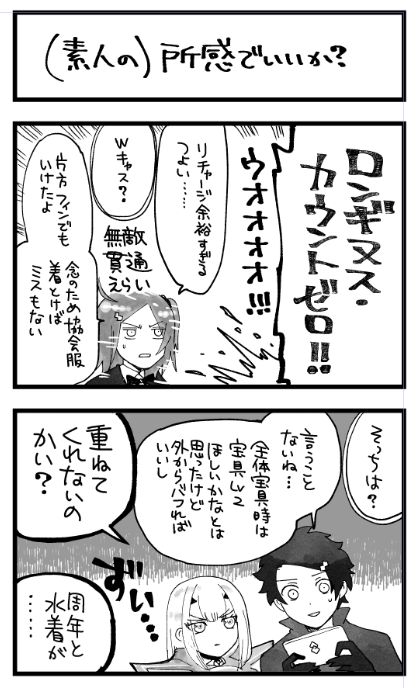 (素人の)所感でいいか?
ロンギヌス・
カウントゼロ!!
ウオオオオ!!!
リチャージ余裕すぎる
つよい……
Wキャス?
無敵
貫通
えらい
片方フィンでも
いけたよ
念のため協会服
着とけば
ミスもない
そっちは?
言うこと
ないね…
全体宝具時は
宝具Lv2
ほしいかなとは
思ったけど
外からバフれば
いいし
重ねて
くれないの
かい?
ずい…
周年と
水着が
……